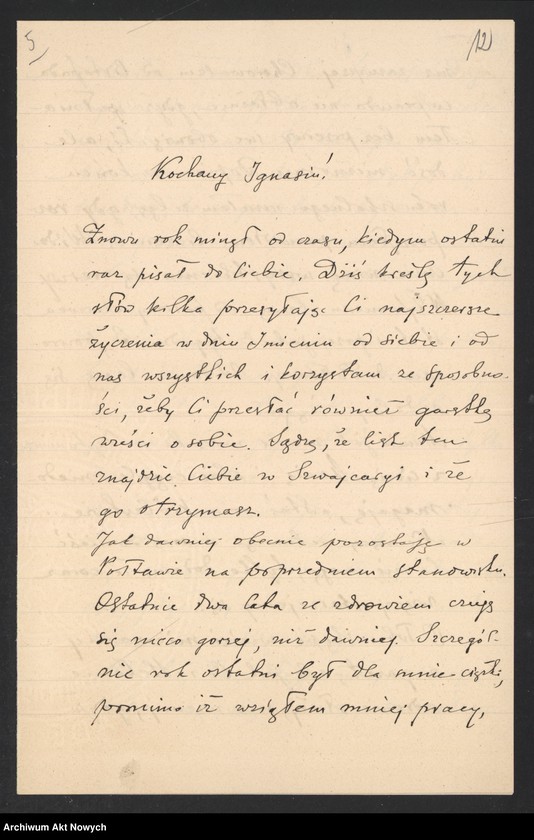 5
12
Kochany Ignasiu!
Znowu rok minął od czasu, kiedym ostatni
raz pisał do Ciebie. Dziś kreślę tych
słów kilka przesyłając Ci najszczersze
życzenia w dniu Imienin od siebie i od
nas wszystkich i korzystam ze sposobno-
ści, żeby Ci przesłać również garstkę
wieści o sobie. Sądzę, że list ten
znajdzie Ciebie w Szwajcaryi i że
go otrzymasz.
Jak dawniej obecnie pozostaję w
Połtawie na poprzedniem stanowisku.
Ostatnie dwa lata ze zdrowiem czuję
się nieco gorzej, niż dawniej. Szczegól-
nie rok ostatni był dla mnie ciężki,
pomimo iż wziąłem mniej pracy,
Archiwum Akt Nowych